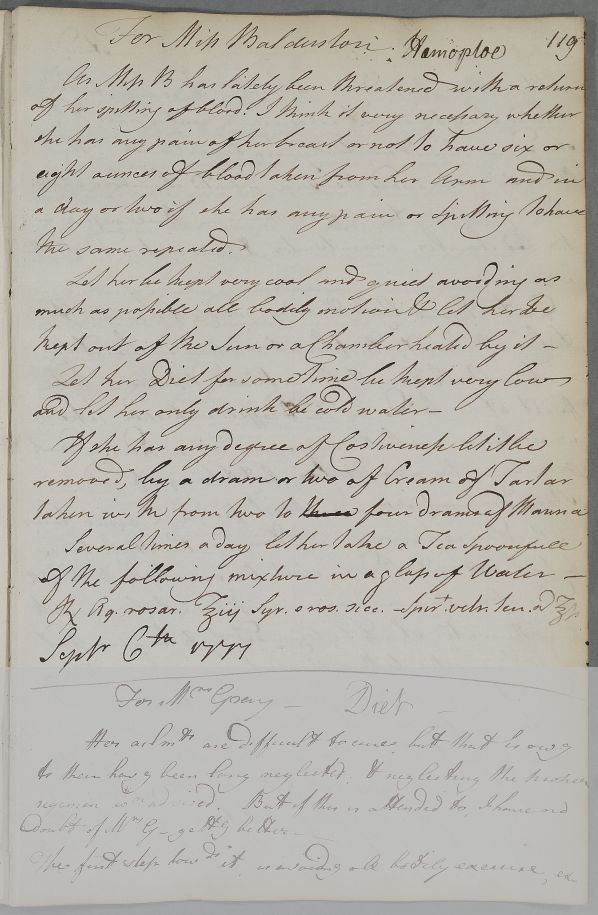 For Miss Balderston. Hæmoptoe 119
As Miss B has lately been threatened with a return
of her spitting of blood. I think it very necessary whether
she has any pain of her breast or not to have six or
eight ounces of blood taken from her Arm and in
a day or two if she has any pain or Spitting to have
the same repeated.
Let her be kept very cool and quiet avoiding as
much as possible all bodily motion & let her be
kept out of the Sun or a Chamber heated by it –
Let her Diet for some time be kept very low
and let her only drink be cold water –
If she has any degree of Costiveness let it be
removed, by a dram or two of Cream of Tartar
taken with from two to three four drams of Manna
Several times a day let her take a Tea Spoonfull
of the following mixture in a glass of Water –
℞ Aq. rosar. ℥iij Syr. e ros. sicc. Spirt. vitr. ten. a ℥ß
Septr 6th 1777
For Mrs Grey – Diet –
Her ailmts are difficult to cure, but that is owg
to their havg been long neglected, & neglecting the proper
regimen wn advised. But if this is attended to, I have no
doubt of Mrs G– gettg better –
The first step towds it, is avoiding all bodily exercise, ex